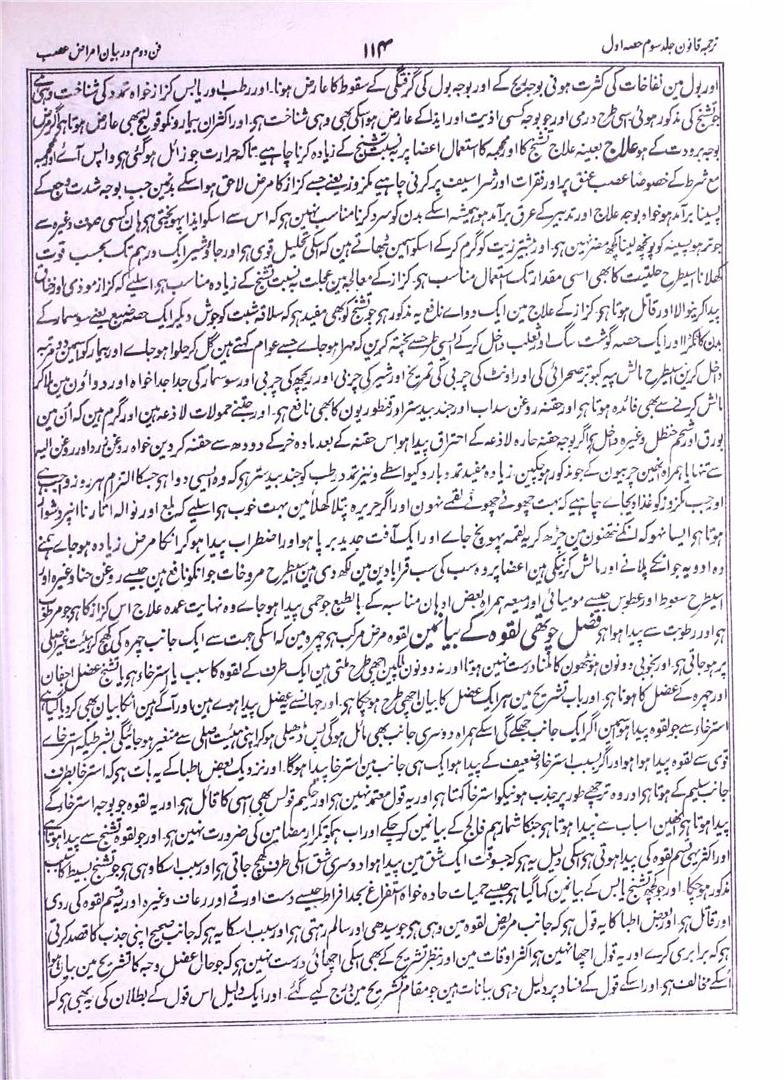 ترجمہ قانون جلد سوم حصہ اول ۱۱۴ فن دوم در بیان امراض عصب
اور بول مین نفاخات کی کثرت ہوتی بوجہ ریح کے اور بوجہ بول کی گرفتگی کے سقوط کا عارض ہونا۔ اور رطب اور یابس کزاز خواہ تمدد کی شناخت وہی ہے
جو تشنج کی مذکور ہوئی اسی طرح درمی اور جو بوجہ کسی اذیت اور ایذا کے عارض ہو اسکی بھی وہی شناخت ہو اور اکثر ان بیمارونکو قولنج بھی عارض ہوتا ہو اگر مرض
بوجہ برودت کے ہو علاج بعینہ علاج تشنج کا اور محجمہ کا استعمال اعضا پر نسبت تشنج کے زیادہ کرنا چاہیے تاکہ حرارت جو زائل ہو گئی ہو واپس آئے اور محجمہ
مع شرط کے خصوصاً عصب عنق پر اور فقرات اور شراسیف پر کرنی چاہیے مکزوز یعنے جسے کزاز کا مرض لاحق ہو اسکے بدنمین جب بوجہ شدت وجع کے
پسینا برآمد ہو خواہ بوجہ علاج اور تدبیر کے عرق برآمد ہو ہمیشہ اسکے بدن کو سرد کرنا مناسب نہین ہو کہ اس سے اسکو ایذا پہونچتی ہو ہان کسی صوف وغیرہ سے
جو تر ہو پسینہ کو پونچھ لینا کچھ مضر نہین ہو اور بیشتر زیت کو گرم کرکے اسکو اسمین بٹھاتے ہین کہ اسکی تحلیل قوی ہو اور جاؤشیر ایک درہم تک بحسب قوت
کھلانا اسیطرح حلتیت کا بھی اسی مقدار تک استعمال مناسب ہو۔ کزاز کے معالجہ مین عجلت بہ نسبت تشنج کے زیادہ مناسب ہو اسلیے کہ کزاز موذی اور خناق
پیدا کرنیوالا اور قاتل ہوتا ہو۔ کزاز کے علاج مین ایک دواے نافع یہ مذکور ہو جو تشنج کو بھی مفید ہو کہ سلاقہ شبت کو جوش دیکر ایک حصہ ضبع یعنے سوسمار کے
بدن کا ٹکڑا اور ایک حصہ گوشت سگ اور ثعلب داخل کرکے اسی طرح سے پختہ کرین کہ مہرا ہو جاوے جسے عوام کہتے ہین گل کر حلوا ہو جاے اور بیمار کو اسمین دو مرتبہ
داخل کرین اسیطرح مالش پیہ کبوتر صحرائی کی اور اونٹ کی چربی کی تمریخ اور شیر کی چربی اور ریچھ کی چربی اور سوسمار کی جدا جدا خواہ اور دوائون مین ملا کر
مالش کرنے سے بھی فائدہ ہوتا ہو اور حقنہ روغن سداب اور جند بیدستر اور قنطوریون کا بھی نافع ہو۔ اور جتنے حمولات لاذعہ ہین اور گرم ہین کہ ان مین
بورق اور شحم حنظل وغیرہ داخل ہو اگر بوجہ حقنہ حارہ لاذعہ کے احتراق پیدا ہو اس حقنہ کے بعد مادہ خر کے دودھ سے حقنہ کر دین خواہ روغن زرد اور روغن الیہ
سے تنہا یا ہمراہ انھین چربیون کے جو مذکور ہو چکین۔ زیادہ مفید تمدد بارد کیواسطے ونیز تمدد رطب کو جند بیدستر ہو کہ وہ ایسی دوا ہو جسکا التزام ہر روز واجب ہے
اور جب مکزوز کو غذا دیجاے چاہیے کہ بہت چھوٹے چھوٹے لقمے نہون اور اگر حریرہ پتلا کھلائین بہت خوب ہو اسلیے کہ بلع اور نوالہ اتارنا انپر دشوار
ہوتا ہو ایسا نہو کہ انکے نتھنون مین چڑھ کر یہ لقمہ پہونچ جاے اور ایک آفت جدید برپا ہو اور اضطراب پیدا ہو کر انکا مرض زیادہ ہو جاے ہمنے
وہ ادویہ جو انکے پلانے اور مالش کرنیکی ہین اعضا پر وہ سب کی سب قرابادین مین لکھ دی ہین اسیطرح مروخات جو انکو نافع ہین جیسے روغن حنا وغیرہ اور
اسیطرح سعوط اور عطوس جیسے مومیائی اور میعہ ہمراہ بعض ادہان مناسبہ کے بالطبع جو حمی پیدا ہو جاے وہ نہایت عمدہ علاج اس کزاز کا ہو جو مرطوب
ہو اور رطوبت سے پیدا ہوا ہو فصل چوتھی لقوہ کے بیانمین لقوہ مرض مرکب ہو چہرہ مین کہ اسکی جہت سے ایک جانب چہرہ کی کھچ کر ہیئت غیر اصلی
پر ہو جاتی ہو اور بخوبی دونون ہونٹھون کا ملنا درست نہین ہوتا اور نہ دونون پلکین اچھی طرح ملتی ہین ایک طرف کے لقوہ کا سبب یا استرخا ہو یا تشنج عضل اجفان
اور چہرہ کے عضل کا ہونا ہو۔ اور باب تشریح مین ہر ایک عضل کا بیان اچھی طرح ہو چکا ہو۔ اور جہانسے یہ عضل پیدا ہوے ہین اور آگے ہین انکا بیان بھی کر دیا گیا ہے
استرخاء سے جو لقوہ پیدا ہو اسمین اگر ایک جانب جھکے گی اسکے ہمراہ دوسری جانب بھی مائل ہو گی پس ڈھیلی ہو کر اپنی ہیئت اصلی سے متغیر ہو جائیگی بشرطیکہ استرخاے
قوی سے لقوہ پیدا ہوا ہو اور اگر بسبب استرخاء ضعیف کے پیدا ہوا ایک ہی جانب مین استرخا پیدا ہو گا۔ اور نزدیک بعض اطبا کے یہ بات ہو کہ استرخا بطرف
جانب سلیم کے ہوتا ہو اور وہ ترچھے طور پر جذب ہونیکو استرخا کہتا ہو اور یہ قول معتمد نہین ہو اور حکیم فولس بھی اسی کا قائل ہو اور یہ لقوہ جو بوجہ استرخا کے
پیدا ہوتا ہو انھین اسباب سے پیدا ہوتا ہو جنکا شمار ہم فالج کے بیانمین کرچکے اور اب ہمکو تکرار مضامین کی ضرورت نہین ہو اور جو لقوہ تشنج سے پیدا ہوتا ہے
اور اکثر یہی قسم لقوہ کی پیدا ہوتی ہو اسکی دلیل یہ ہو کہ جسوقت ایک شق مین پیدا ہوا دوسری شق اسی طرف کھچ جاتی ہو اور سبب اسکا وہی ہو جو تشنج بسیط کا سبب
مذکور ہو چکا۔ اور جو کچھ تشنج یابس کے بیانمین کہا گیا ہو جیسے حمیات حادہ خواہ استفراغ بحد افراط جیسے دست اور قے اور رعاف وغیرہ اور یہ قسم لقوہ کی ردی
اور قاتل ہو۔ اور بعض اطبا کا یہ قول ہو کہ جانب مریض لقوہ مین وہی ہو جو سیدھی اور سالم رہتی ہو اور سبب اسکا یہ ہو کہ جانب صحیح اپنی جذب کا قصد کرتی
ہو کہ برابری کرے اور یہ قول اچھا نہین ہو اکثر اوقات مین اور نظر تشریح کے بھی اسکی اچھائی درست نہین ہو کہ جو حال عضل وجہ کا تشریح مین بیان ہوا
اسکے مخالف ہو۔ اور اسکے قول کے فساد پر دلیل وہی بیانات ہین جو مقام تشریح مین درج کیے گئے۔ اور ایک دلیل اس قول کے بطلان کی یہ بھی ہو کہ